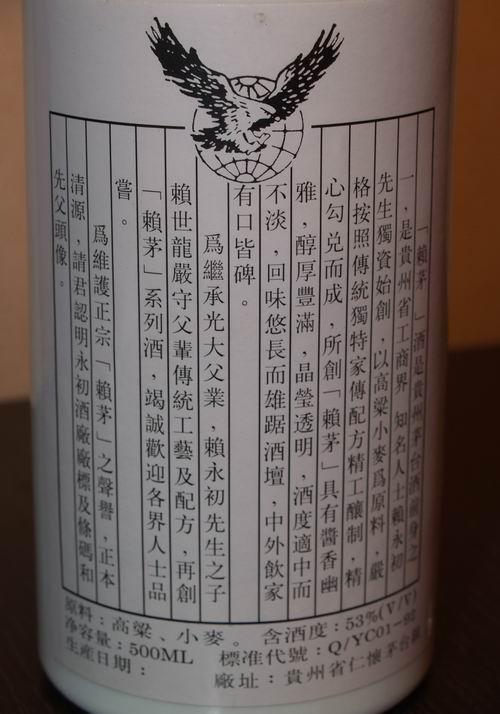 「賴茅」酒是貴州茅台酒前身之
一，是貴州省工商界 知名人士賴永初
先生獨資始創，以高粱小麥爲原料，嚴
格按照傳統獨特家傳配方精工釀制，精
心勾兑而成，所創「賴茅」具有醬香幽
雅，醇厚豐滿，晶瑩透明，酒度適中而
不淡，回味悠長而雄踞酒壇，中外飲家
有口皆碑。
爲繼承光大父業，賴永初先生之子
賴世龍嚴守父輩傳統工藝及配方，再創
「賴茅」系列酒，竭誠歡迎各界人士品
嘗。
爲維護正宗「賴茅」之聲譽，正本
清源，請君認明永初酒廠廠標及條碼和
先父頭像。
原料：高粱、小麥。 含酒度：53%(V/V)
净容量：500ML 標准代號：Q/YC01-92
生産日期： 廠址：貴州省仁懷茅台鎮